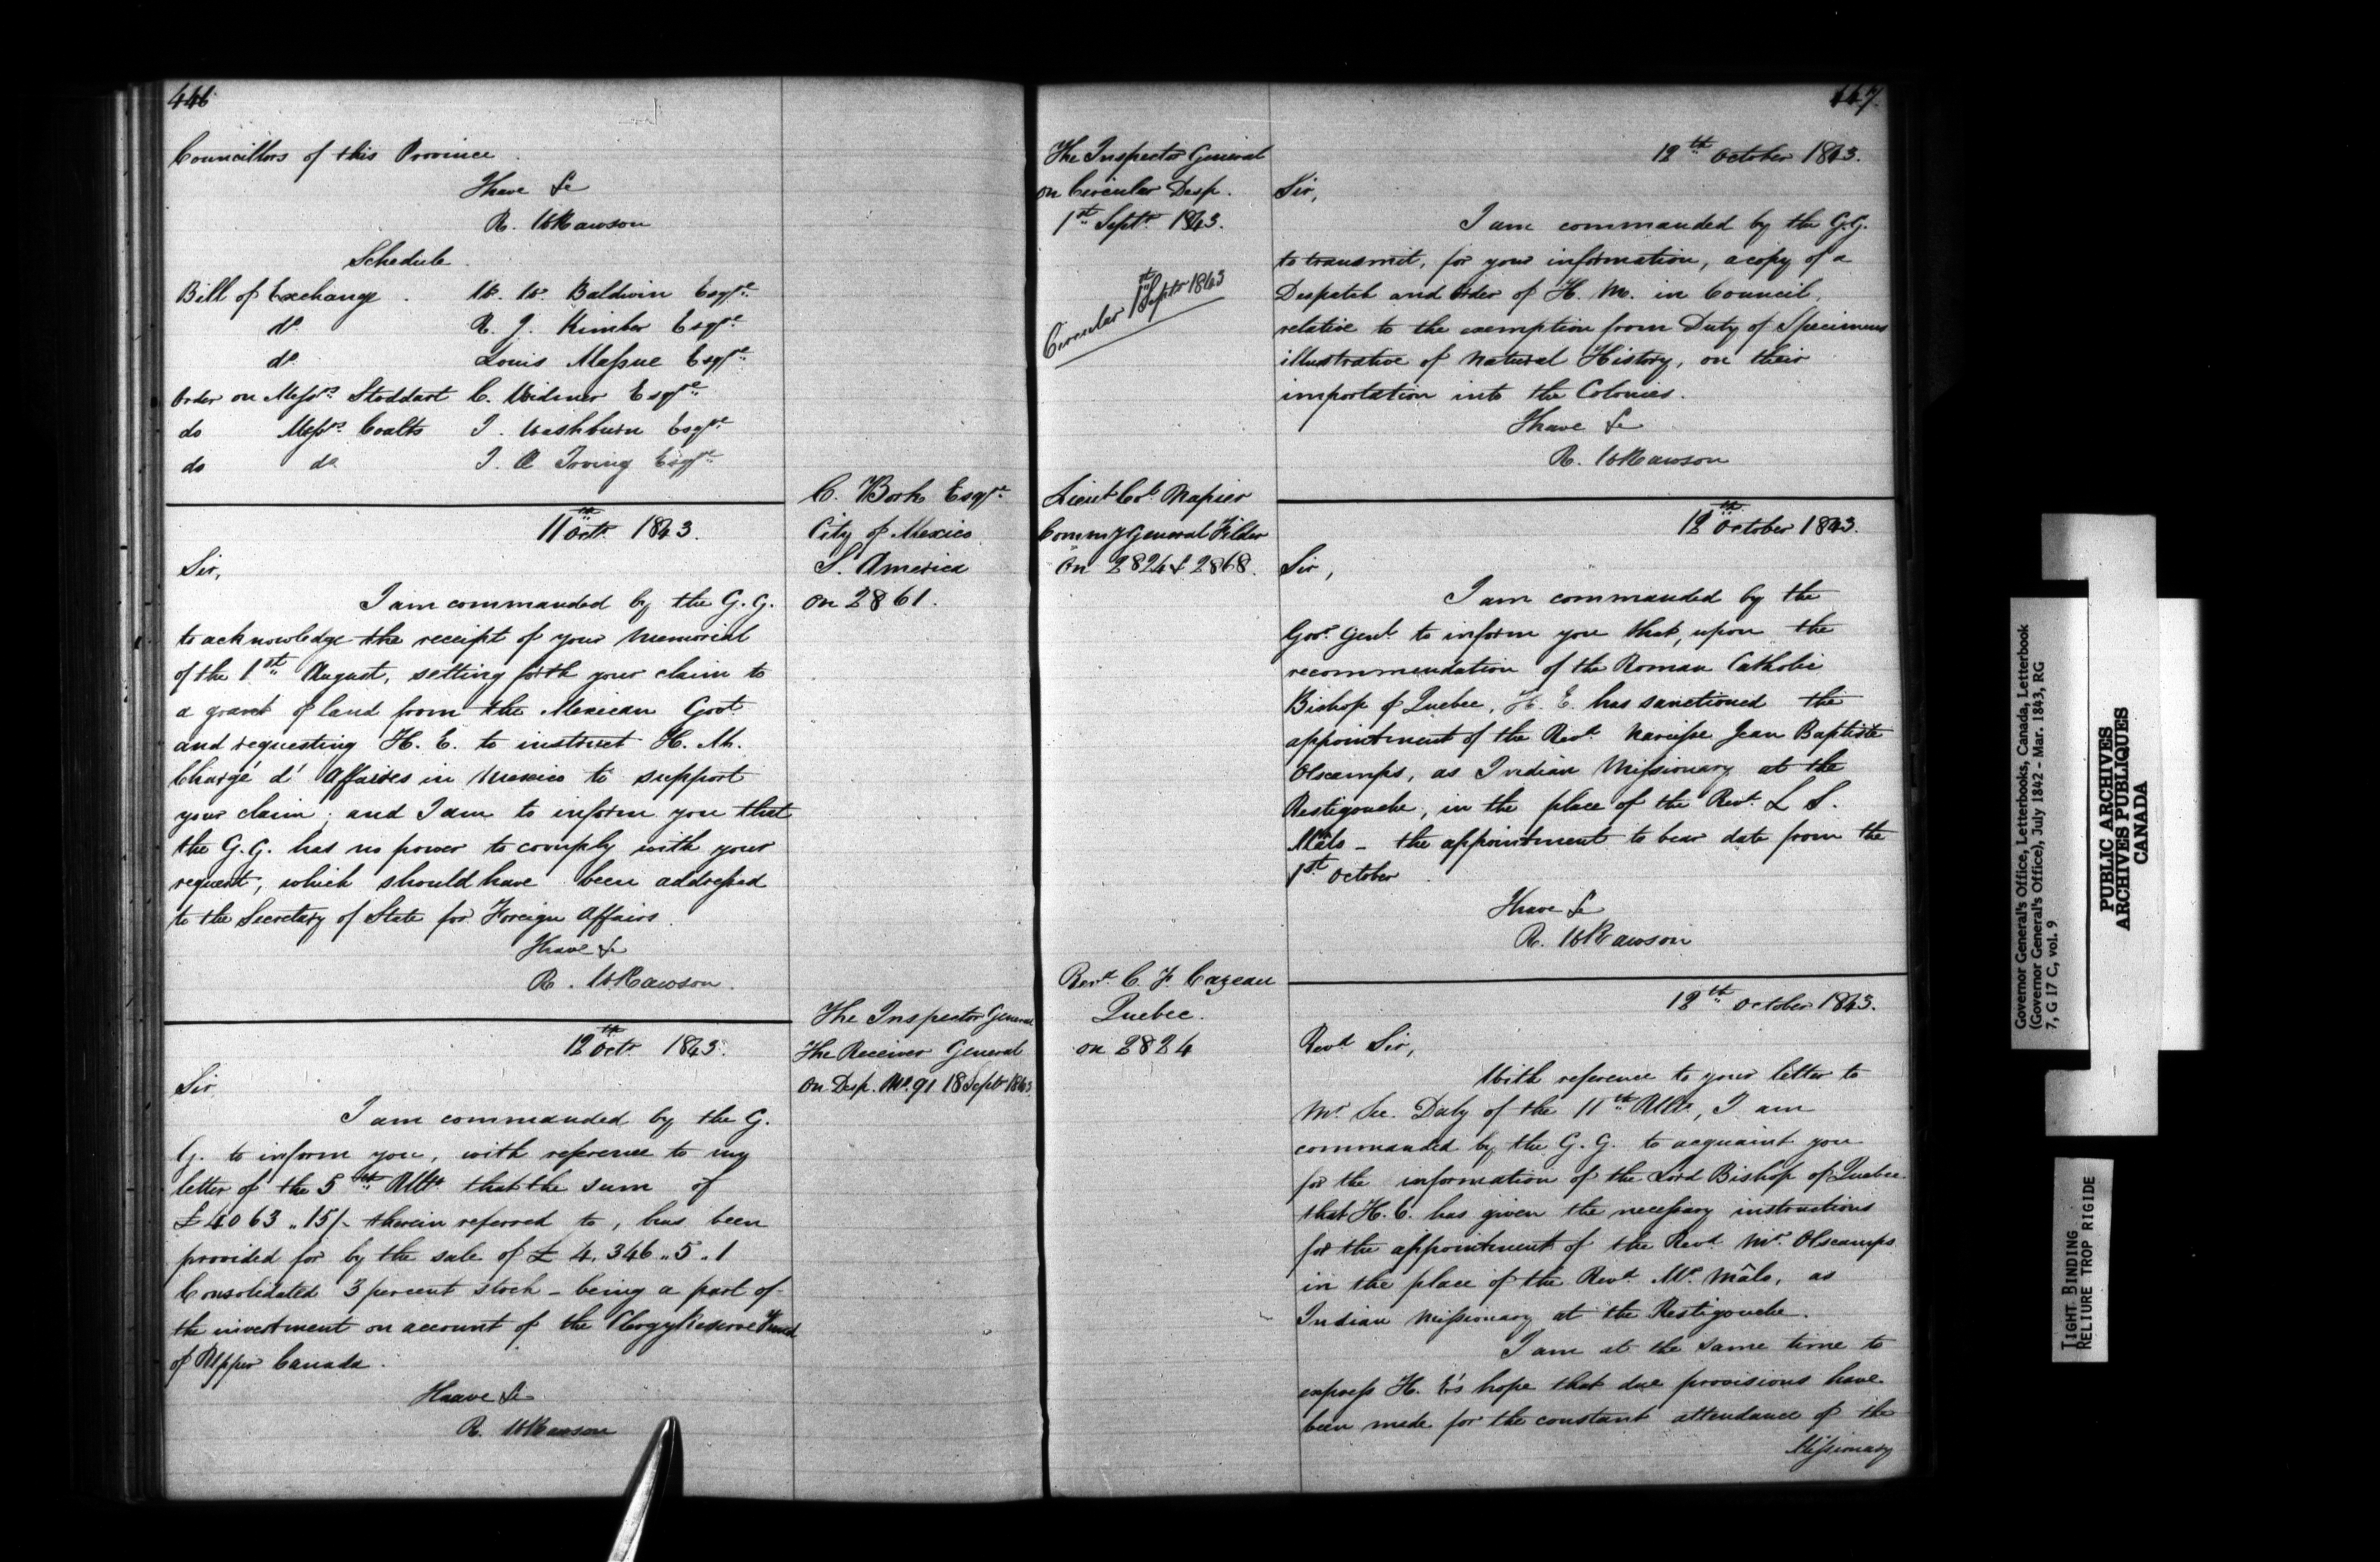 446
Councillors of this Province
I have &c
R. W Rawson
Schedule
Bill of Exchange . W. W. Baldwin Esqre
do R. J. Kimber Esqre
do Louis Massue Esqre
Order on Messrs Stoddart C. Widmer Esqre
do Messrs Coutts S. Washburn Esqre
do do J. Æ Irving Esqre
C. Bork Esqre
City of Mexico
S. America
on 2861.
11th Octr 1843.
Sir,
I am commanded by the G. G.
to acknowledge the receipt of your Memorial
of the 1st August, setting forth your claim to
a grant of land from the Mexican Govt
and requesting H. E. to instruct H. M.
Chargé d' Affaires in Mexico to support
your claim; and I am to inform you that
the G. G. has no power to comply with your
request, which should have been addressed
to the Secretary of State for Foreign Affairs.
I have &c
R. W Rawson.
The Inspector General
The Receiver General
on Desp. No. 91 18 Septr 1843.
12th Octr 1843.
Sir,
I am commanded by the G.
G. to inform you, with reference to my
letter of the 5th Ulto that the sum of
£4063 ,, 15/- therein referred to, has been
provided for by the sale of £ 4,346 ,, 5 ,, 1
Consolidated 3 percent stock - being a part of
the investment on account of the Clergy Reserve Fund
of Upper Canada.
I have &c
R. W Rawson
447.
The Inspector General
on Circular Desp.
1st Septr 1843.
Circular 1st Septr 1843
12th October 1843.
Sir,
I am commanded by the G.G.
to transmit, for your information, a copy of a
Despatch and Order of H. M. in Council,
relative to the exemption from Duty of Specimens
illustrative of Natural History, on their
importation into the Colonies.
I have &c
R. W Rawson
Lieut Col. Napier
Commy General Filder
on 2824 & 2868.
12th October 1843.
Sir,
I am commanded by the
Govr Genl to inform you that, upon the
recommendation of the Roman Catholic
Bishop of Quebec, H. E. has sanctioned the
appointment of the Revd Narcisse Jean Baptiste
Olscamps, as Indian Missionary at the
Restigouche, in the place of the Revd L S.
Mâlo - the appointment to bear date from the
1st October
I have &c
R. W Rawson
Revd C. F. Cazeau
Quebec.
on 2824
12th October 1843.
Revd Sir,
With reference to your letter to
Mr Sec. Daly of the 11th Ulto, I am
commanded by the G. G. to acquaint you
for the information of the Lord Bishop of Quebec
that H. E. has given the necessary instructions
for the appointment of the Revd Mr Olscamps
in the place of the Revd Mr Mâlo, as
Indian Missionary at the Restigouche.
I am at the same time to
express H. E's hope that due provisions have
been made for the constant attendance of the
Missionary
Governor General's Office, Letterbooks, Canada, Letterbook
(Governor General's Office), July 1842 - Mar. 1843, RG
7, G 17 C, vol. 9
PUBLIC ARCHIVES
ARCHIVES PUBLIQUES
CANADA
TIGHT BINDING
RELIURE TROP RIGIDE